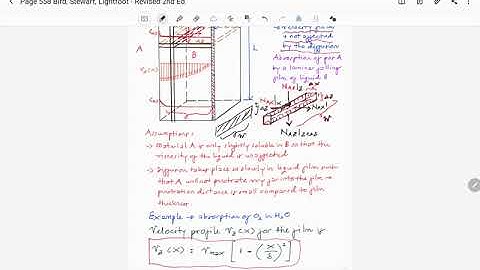 Page 558 Bird, Stewart, Lightfoot - Revised 2nd Ed
is not affected
by the diffusion
Absorption of gas A
by a laminar falling
film of liquid B
A
B
L
Assumptions:
→ Material A is only slightly soluble in B so that
the viscosity of the liquid is unaffected
→ Diffusion takes place so slowly in liquid film such
that A will not penetrate very far into the film →
penetration distance is small compared to film
thickness
Example → absorption of O2 in H2O
Velocity profile Vz(x) for the film is
Vz(x) = Vmax [1 - (x/δ)²]